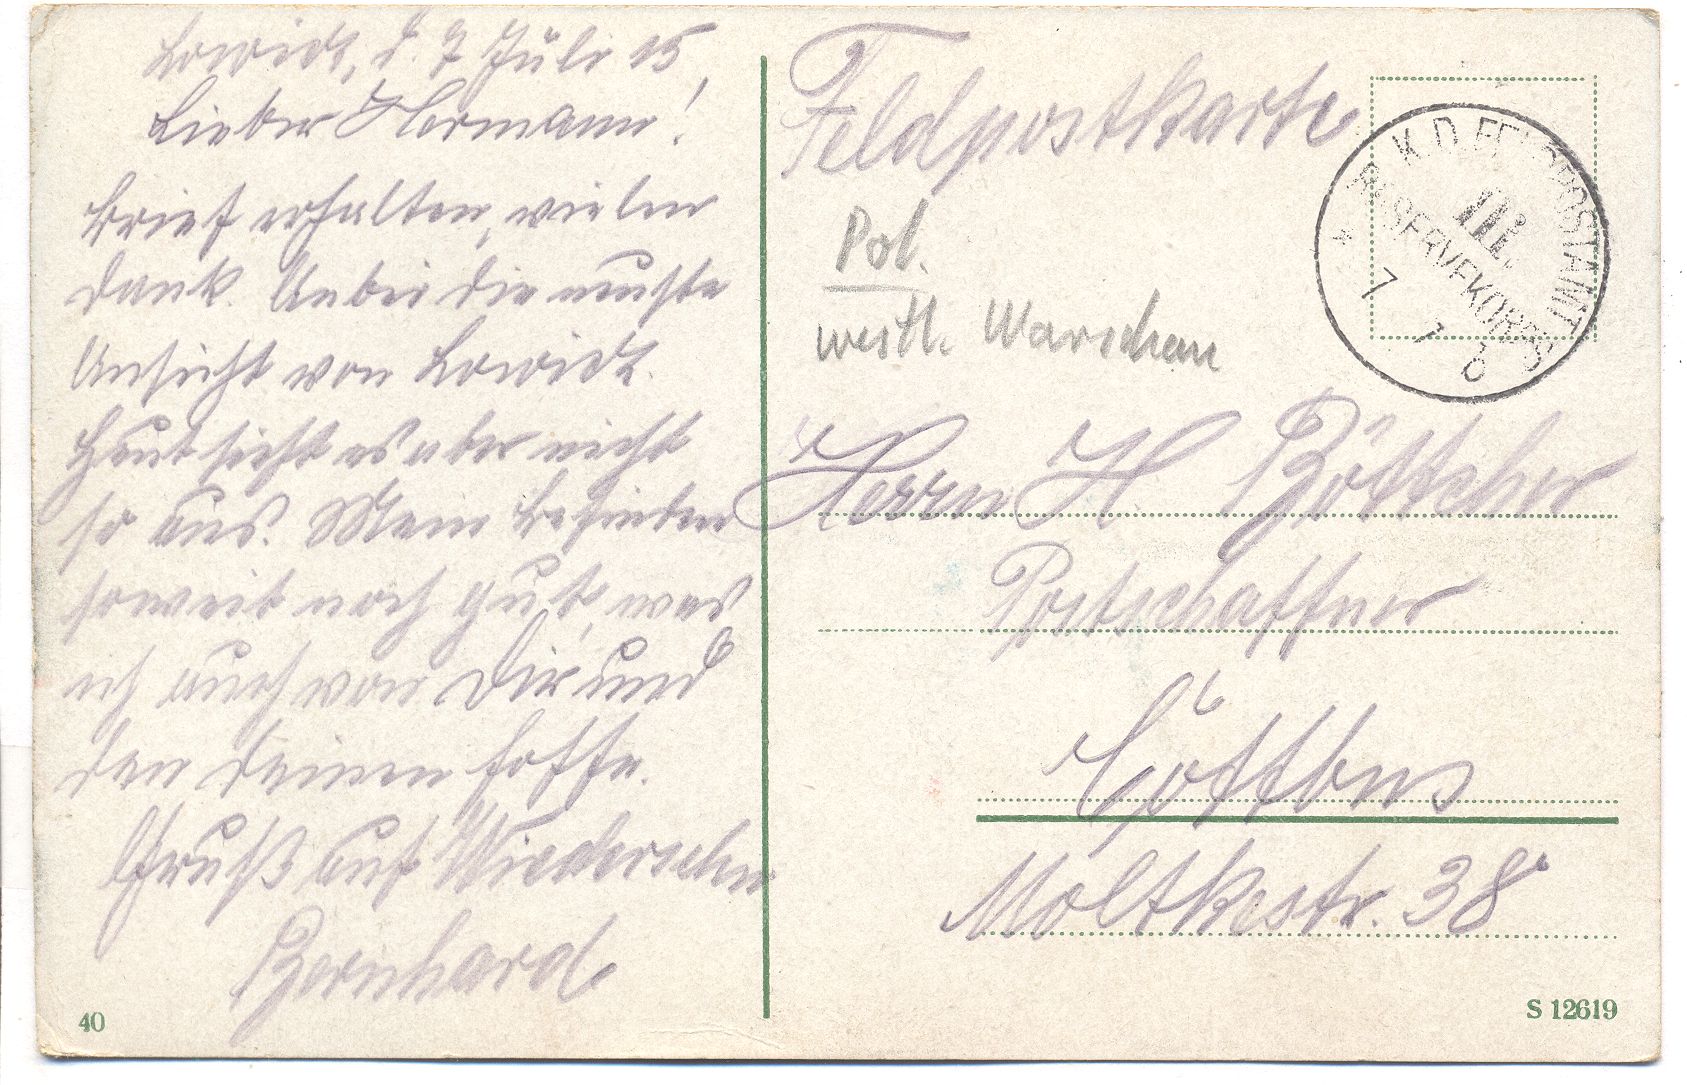 Lowicz, d. 7 Juli 15,
Lieber Hermann!
Brief erhalten, vielen
Dank. Anbei die neuste
Ansicht von Lowicz.
Heut sieht es aber nicht
so aus. Mein Befinden
soweit noch gut, was
ich auch von Dir und
den Deinen hoffe.
Gruß auf Wiedersehn
Bernhard
40
Feldpostkarte
Pol.
westl. Warschau
K.D. FELDPOSTAMT
III.
RESERVEKORPS
* 7 7
Herrn H. Böttcher
Postschaffner
Cottbus
Moltkestr. 38
S 12619